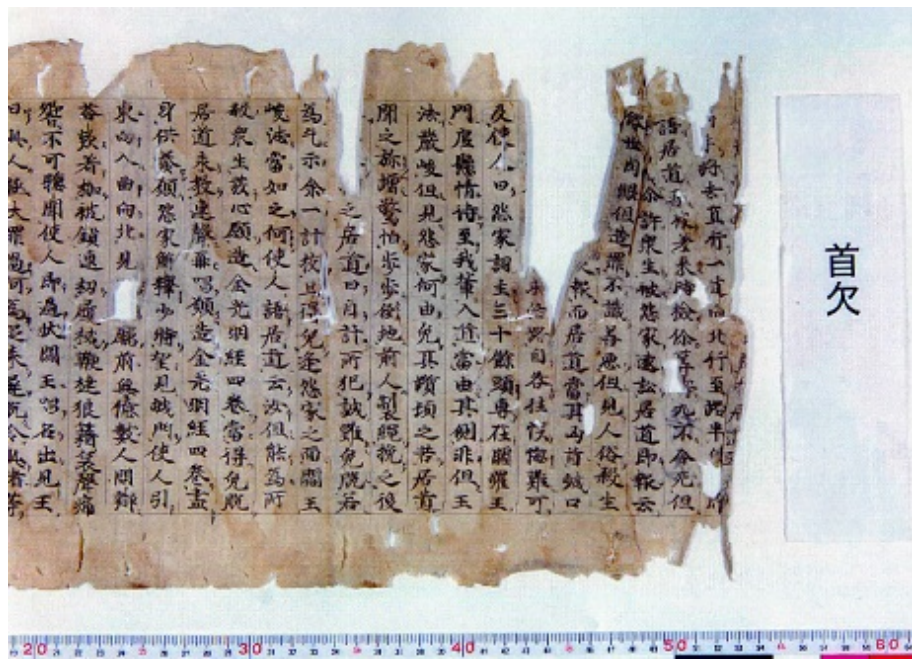 首欠
去直行一道向北行至路半使
語居道吾被差來時檢你算壽元不合死但
你合許衆生被怨家逮訟居道即報云
世間眼但造罪不識善惡但見人俗殺生
報而居道當其凶首緘口
自各往恨悔難可
及使人曰怨家詞主三十餘頭專在聽候王
門虔懇情詩至我輩入道當由其側非但王
法嚴峻但見怨家何由免其躓頓之苦居道
聞之弥增驚怕步步倒地前人掣繩挽之後
之居道曰自計所犯誠雖免脫若
為乞示余一計校且得免逢怨家之面閻王
峻法當如之何使人語居道云汝但能為所
殺衆生發心願造金光明經四卷當得免脫
居道承教連聲再唱願造金光明經四卷盡
身供養願怨家解釋少時望見城門使人引
東向入曲向北見 廳前無億數人問辯
荅款著枷被鎖連杻履被鞭撻狼籍哀聲痛
響不可聽聞使人即過狀閻王唱名出見王
曰此人極大罪過何
20 30 40 50 60